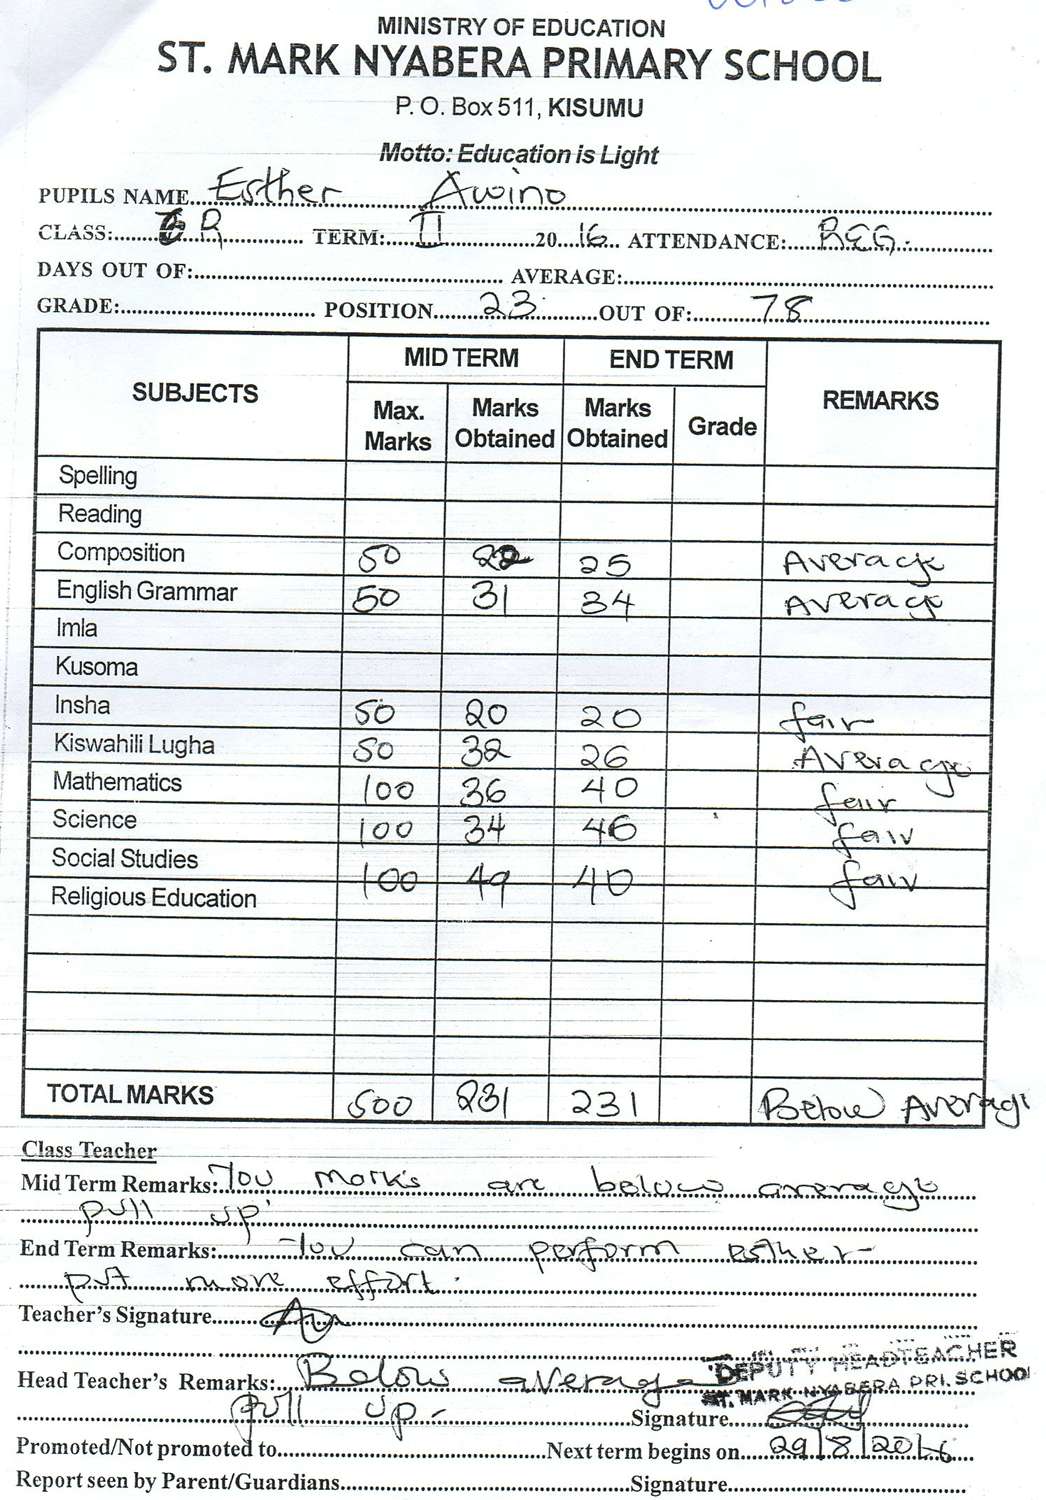 MINISTRY OF EDUCATION
ST. MARK NYABERA PRIMARY SCHOOL
P. O. Box 511, KISUMU
Motto: Education is Light
PUPILS NAME Esther Awino
CLASS: R TERM: II 2016 ATTENDANCE: REG.
DAYS OUT OF: AVERAGE:
GRADE: POSITION 23 OUT OF: 78
SUBJECTS MID TERM END TERM REMARKS
Max. Marks Marks Obtained Marks Obtained Grade
Spelling
Reading
Composition 50 22 25 Average
English Grammar 50 31 34 Average
Imla
Kusoma
Insha 50 20 20 fair
Kiswahili Lugha 50 32 26 Average
Mathematics 100 36 40 fair
Science 100 34 46 fair
Social Studies 100 49 40 fair
Religious Education
TOTAL MARKS 500 231 231 Below Average
Class Teacher
Mid Term Remarks: You marks are below average
pull up
End Term Remarks: You can perform esther-
put more effort.
Teacher's Signature
DEPUTY HEADTEACHER
Head Teacher's Remarks: Below average ST. MARK NYABERA PRI. SCHOOL
pull up - Signature
Promoted/Not promoted to Next term begins on 29/8/2016
Report seen by Parent/Guardians Signature